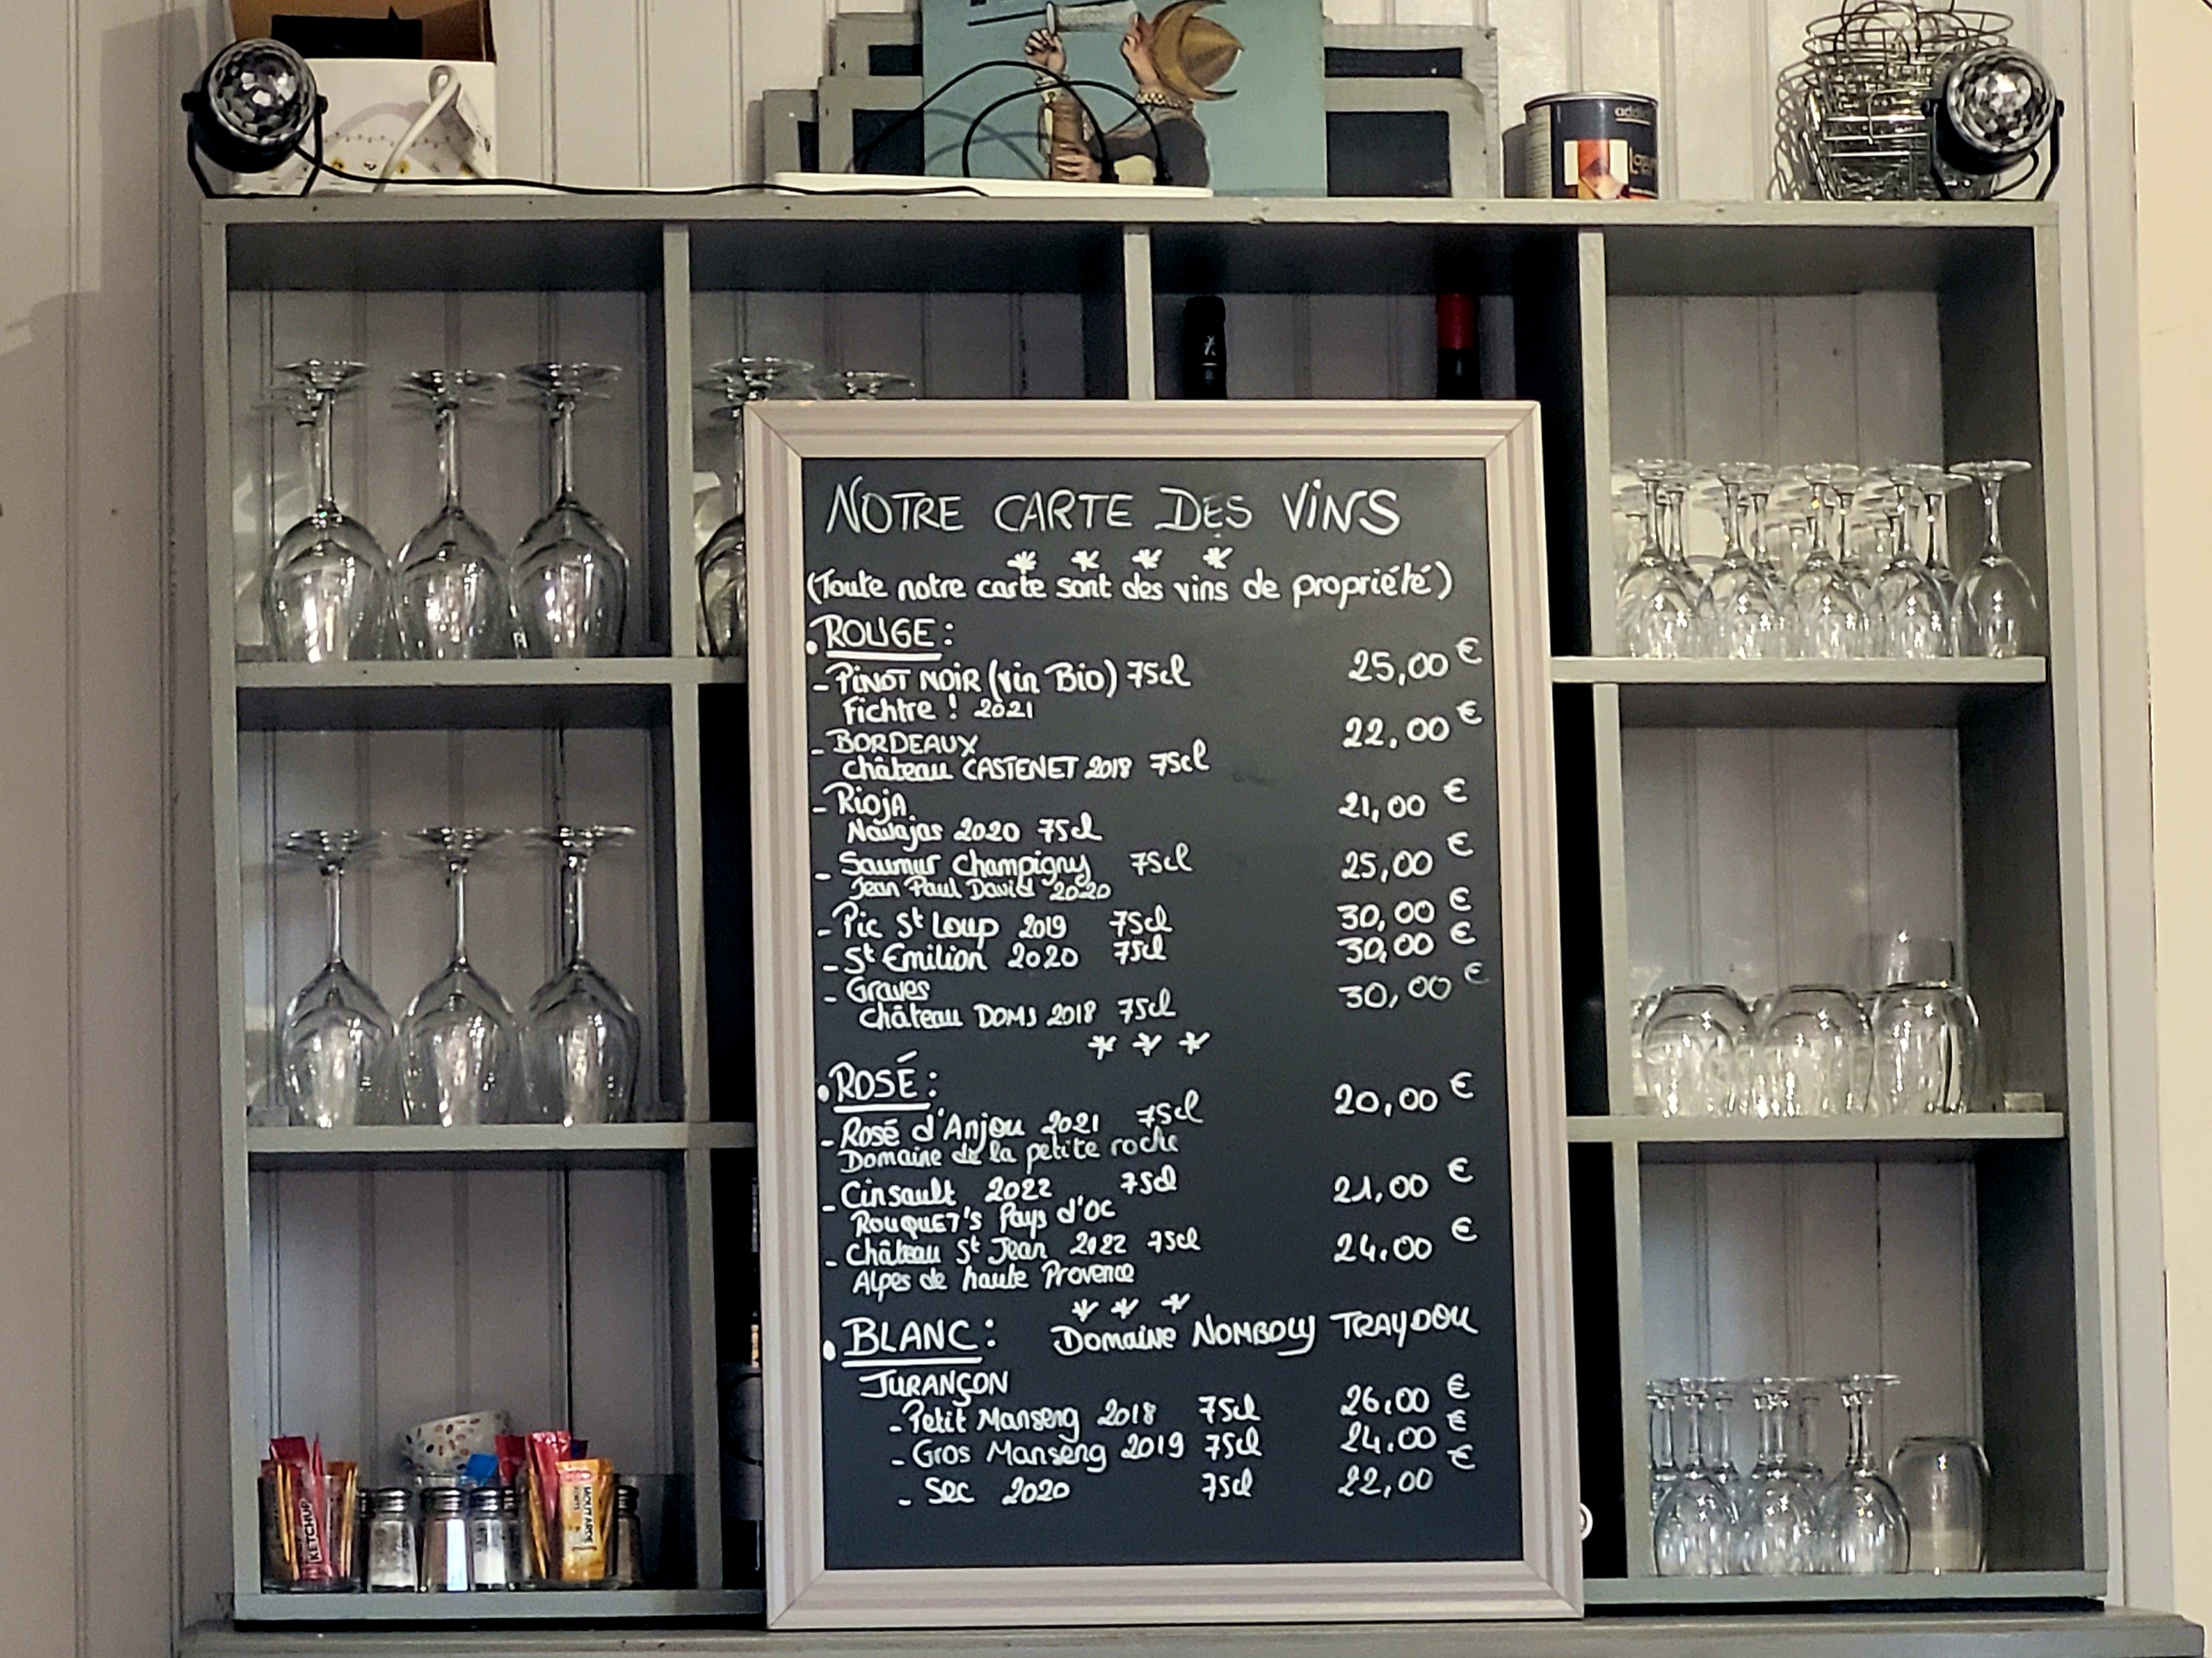 NOTRE CARTE DES VINS
* * * *
(Toute notre carte sont des vins de propriété)
• ROUGE :
- PINOT NOIR (vin Bio) 75cl 25,00 €
Fichtre ! 2021
- BORDEAUX 22,00 €
Château CASTENET 2018 75cl
- RIOJA 21,00 €
Navajas 2020 75cl
- Saumur Champigny 75cl 25,00 €
Jean Paul David 2020
- Pic St Loup 2019 75cl 30,00 €
- St Emilion 2020 75cl 30,00 €
- Graves 30,00 €
Château DOMS 2018 75cl
* * *
• ROSÉ :
- Rosé d'Anjou 2021 75cl 20,00 €
Domaine de la petite roche
- Cinsault 2022 75cl 21,00 €
ROUQUET's Pays d'OC
- Château St Jean 2022 75cl 24.00 €
Alpes de haute Provence
* * *
• BLANC : Domaine NOMBOLY TRAYDOU
JURANÇON
- Petit Manseng 2018 75cl 26.00 €
- Gros Manseng 2019 75cl 24.00 €
- Sec 2020 75cl 22,00 €
KETCHUP
MOUTARDE